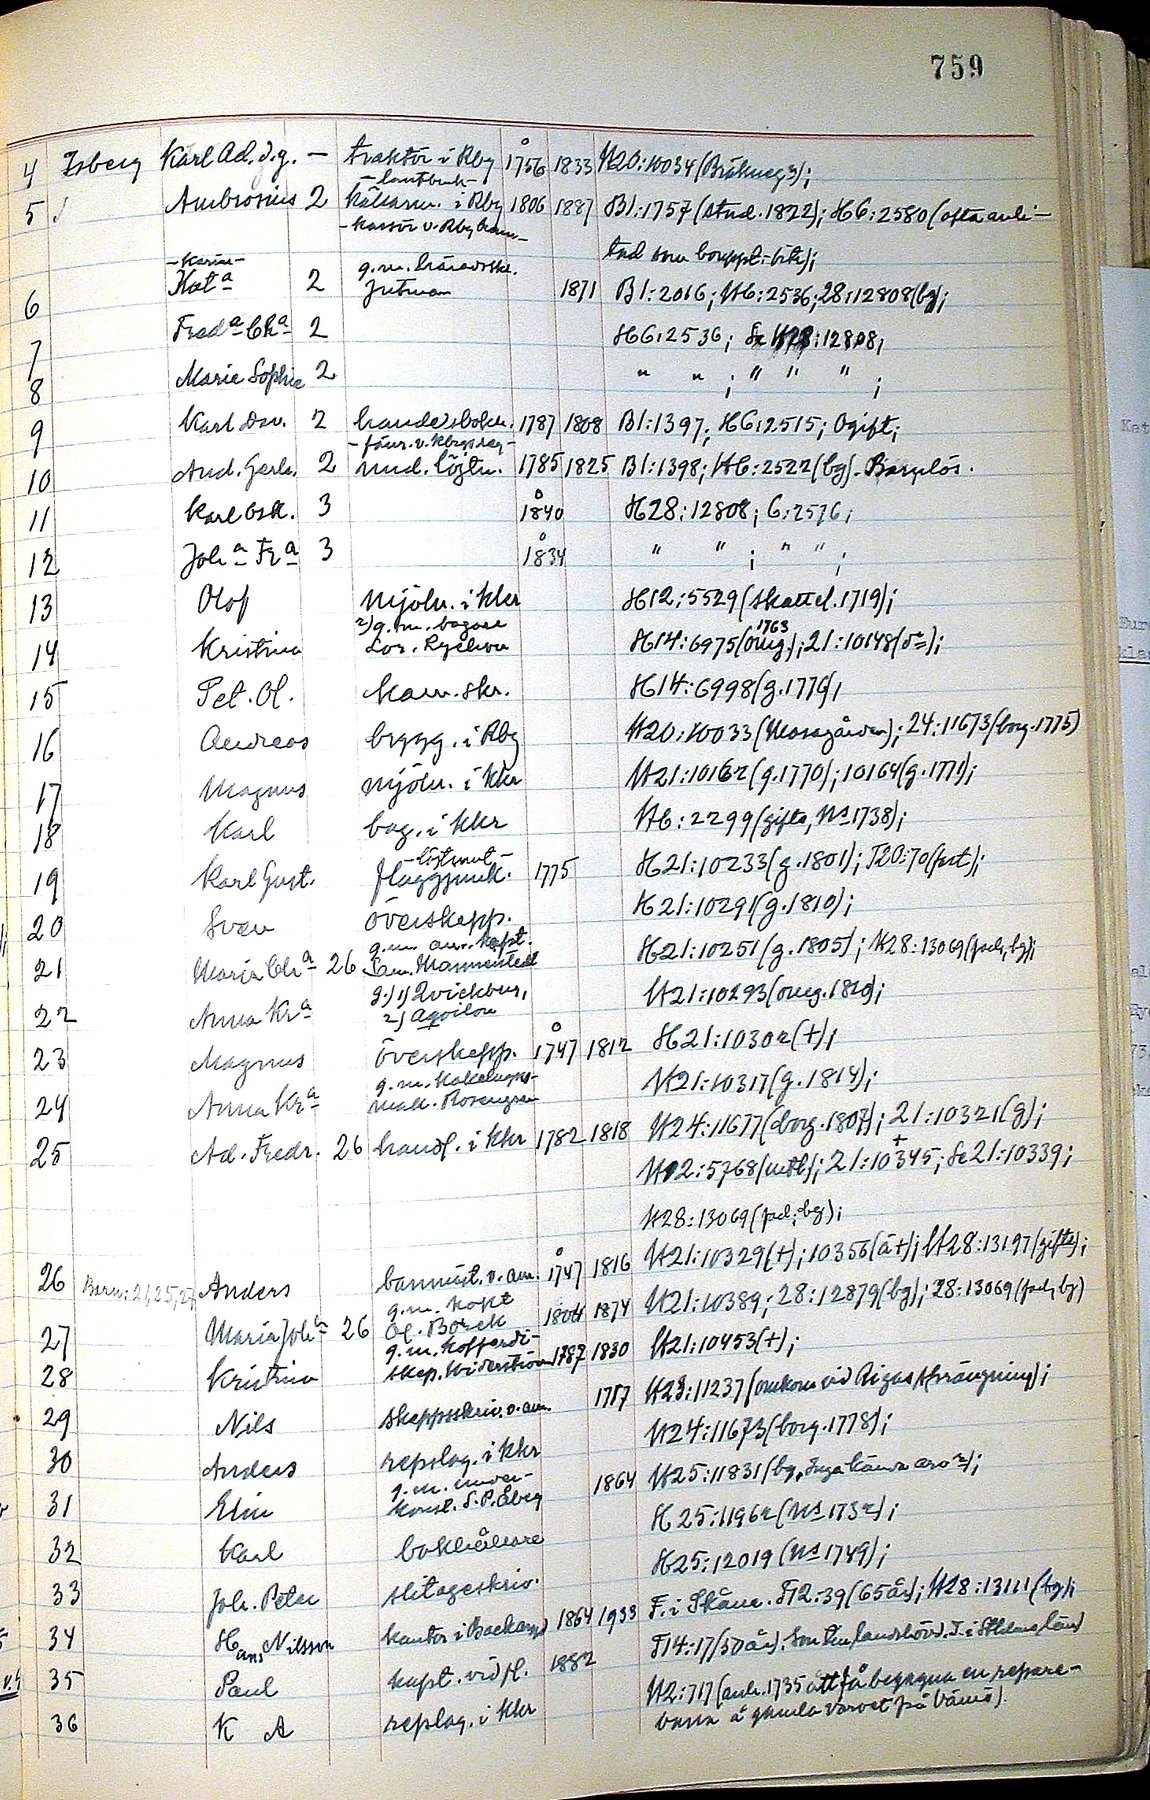 759
4 Isberg Karl Ad. d.y. – traktör i Rby 1756 1833 H20:10034 (Bröms);
–lantbruk–
5 Ambrosius 2 källarm. i Rby 1806 1887 B1:1757 (stud. 1822); H6:2580 (ofta anli-
–kassör v. Rby
tad som bouppt.-förr.);
–Karin– g.m. häradsskr.
6 Kat<sup>a</sup> 2 Jutman 1871 B1:2016; H6:2536; 28:12808 (bg);
7 Fred<sup>a</sup> Ch<sup>a</sup> 2 H6:2536; Se H28:12808;
8 Marie Sophie 2 " " ; " " " ;
9 Karl Dav. 2 handelsbokh. 1787 1808 B1:1397; H6:2515; Ogift;
–fänr. v.
10 And. Gerh. 2 und. löjtn. 1785 1825 B1:1398; H6:2522 (bg). Barnlös.
11 Karl Osk. 3 1840 H28:12808; 6:2576;
12 Joh<sup>a</sup> Fr<sup>a</sup> 3 1834 " " ; " " ;
13 Olof mjöln. i Kkr H12:5529 (skattel. 1719);
2) g.m. bagare 1763
14 Kristina Lor. H14:6975 (omg.); 21:10148 (d:o);
15 Pet. Ol. kam. skr. H14:6998 (g. 1776);
16 Andreas brygg. i Rby H20:10033 (Mosagården); 24:11673 (borg. 1775)
17 Magnus mjöln. i Kkr H21:10162 (g. 1770); 10164 (g. 1771);
18 Karl bag. i Kkr H6:2299 (gifte, N:s 1738);
–löjtnant–
19 Karl Gust. flaggjunk. 1775 H21:10233 (g. 1801); T20:70 (fest);
20 Sven överskepp. H21:10291 (g. 1810);
g.m. am. kapt.
21 Maria Ch<sup>a</sup> 26 Sam. Mannerstedt H21:10251 (g. 1805); H28:13069 (fad., bg);
g. 1) Qvickbur,
22 Anna Kr<sup>a</sup> 2) Aqvilon H21:10293 (omg. 1810);
23 Magnus överskepp. 1747 1812 H21:10302 (+);
g.m. kakelugns-
24 Anna Kr<sup>a</sup> mak. Rosengren H21:10317 (g. 1814);
25 Ad. Fredr. 26 handl. i Kkr 1782 1818 H24:11677 (borg. 1807); 21:10321 (g);
H12:5768 (mtl); 21:10345; Se 21:10339;
H28:13069 (fad; bg);
26 Barn: 21, 25, 27 Anders konst. v. am. 1747 1816 H21:10329 (+); 10356 (ä+); H28:13197 (gifte);
g.m. kapt
27 Maria Joh<sup>a</sup> 26 Ol. Borck 1804 1874 H21:10389; 28:12879 (bg); 28:13069 (fad, bg)
g.m. kofferdi-
28 Kristina skep. Widerström 1787 1830 H21:10453 (+);
29 Nils skeppsskriv. v. am. 1717 H23:11237 (omkom vid Rigas sprängning);
30 Anders repslag. i Kkr H24:11673 (borg. 1778);
g.m. under-
31 Elin konst. S. P. Åberg 1864 H25:11831 (bg, Inga kända arv:r);
32 Karl bokhållare H25:11962 (N:s 1732);
33 Joh. Peter slitageskriv. H25:12019 (N:s 1749);
34 Hans Nilsson kantor i Backaryd 1864 1933 F. i Skåne. T12:39 (65 år); H28:13111 (bg);
35 Paul kapt. vid fl. 1882 T14:17 (50 år). Son till landshövd. I. i Sthlms län
36 K A repslag. i Kkr H2:717 (anh. 1735 att få begagna en repare-
bana å gamla varvet på Vämö).